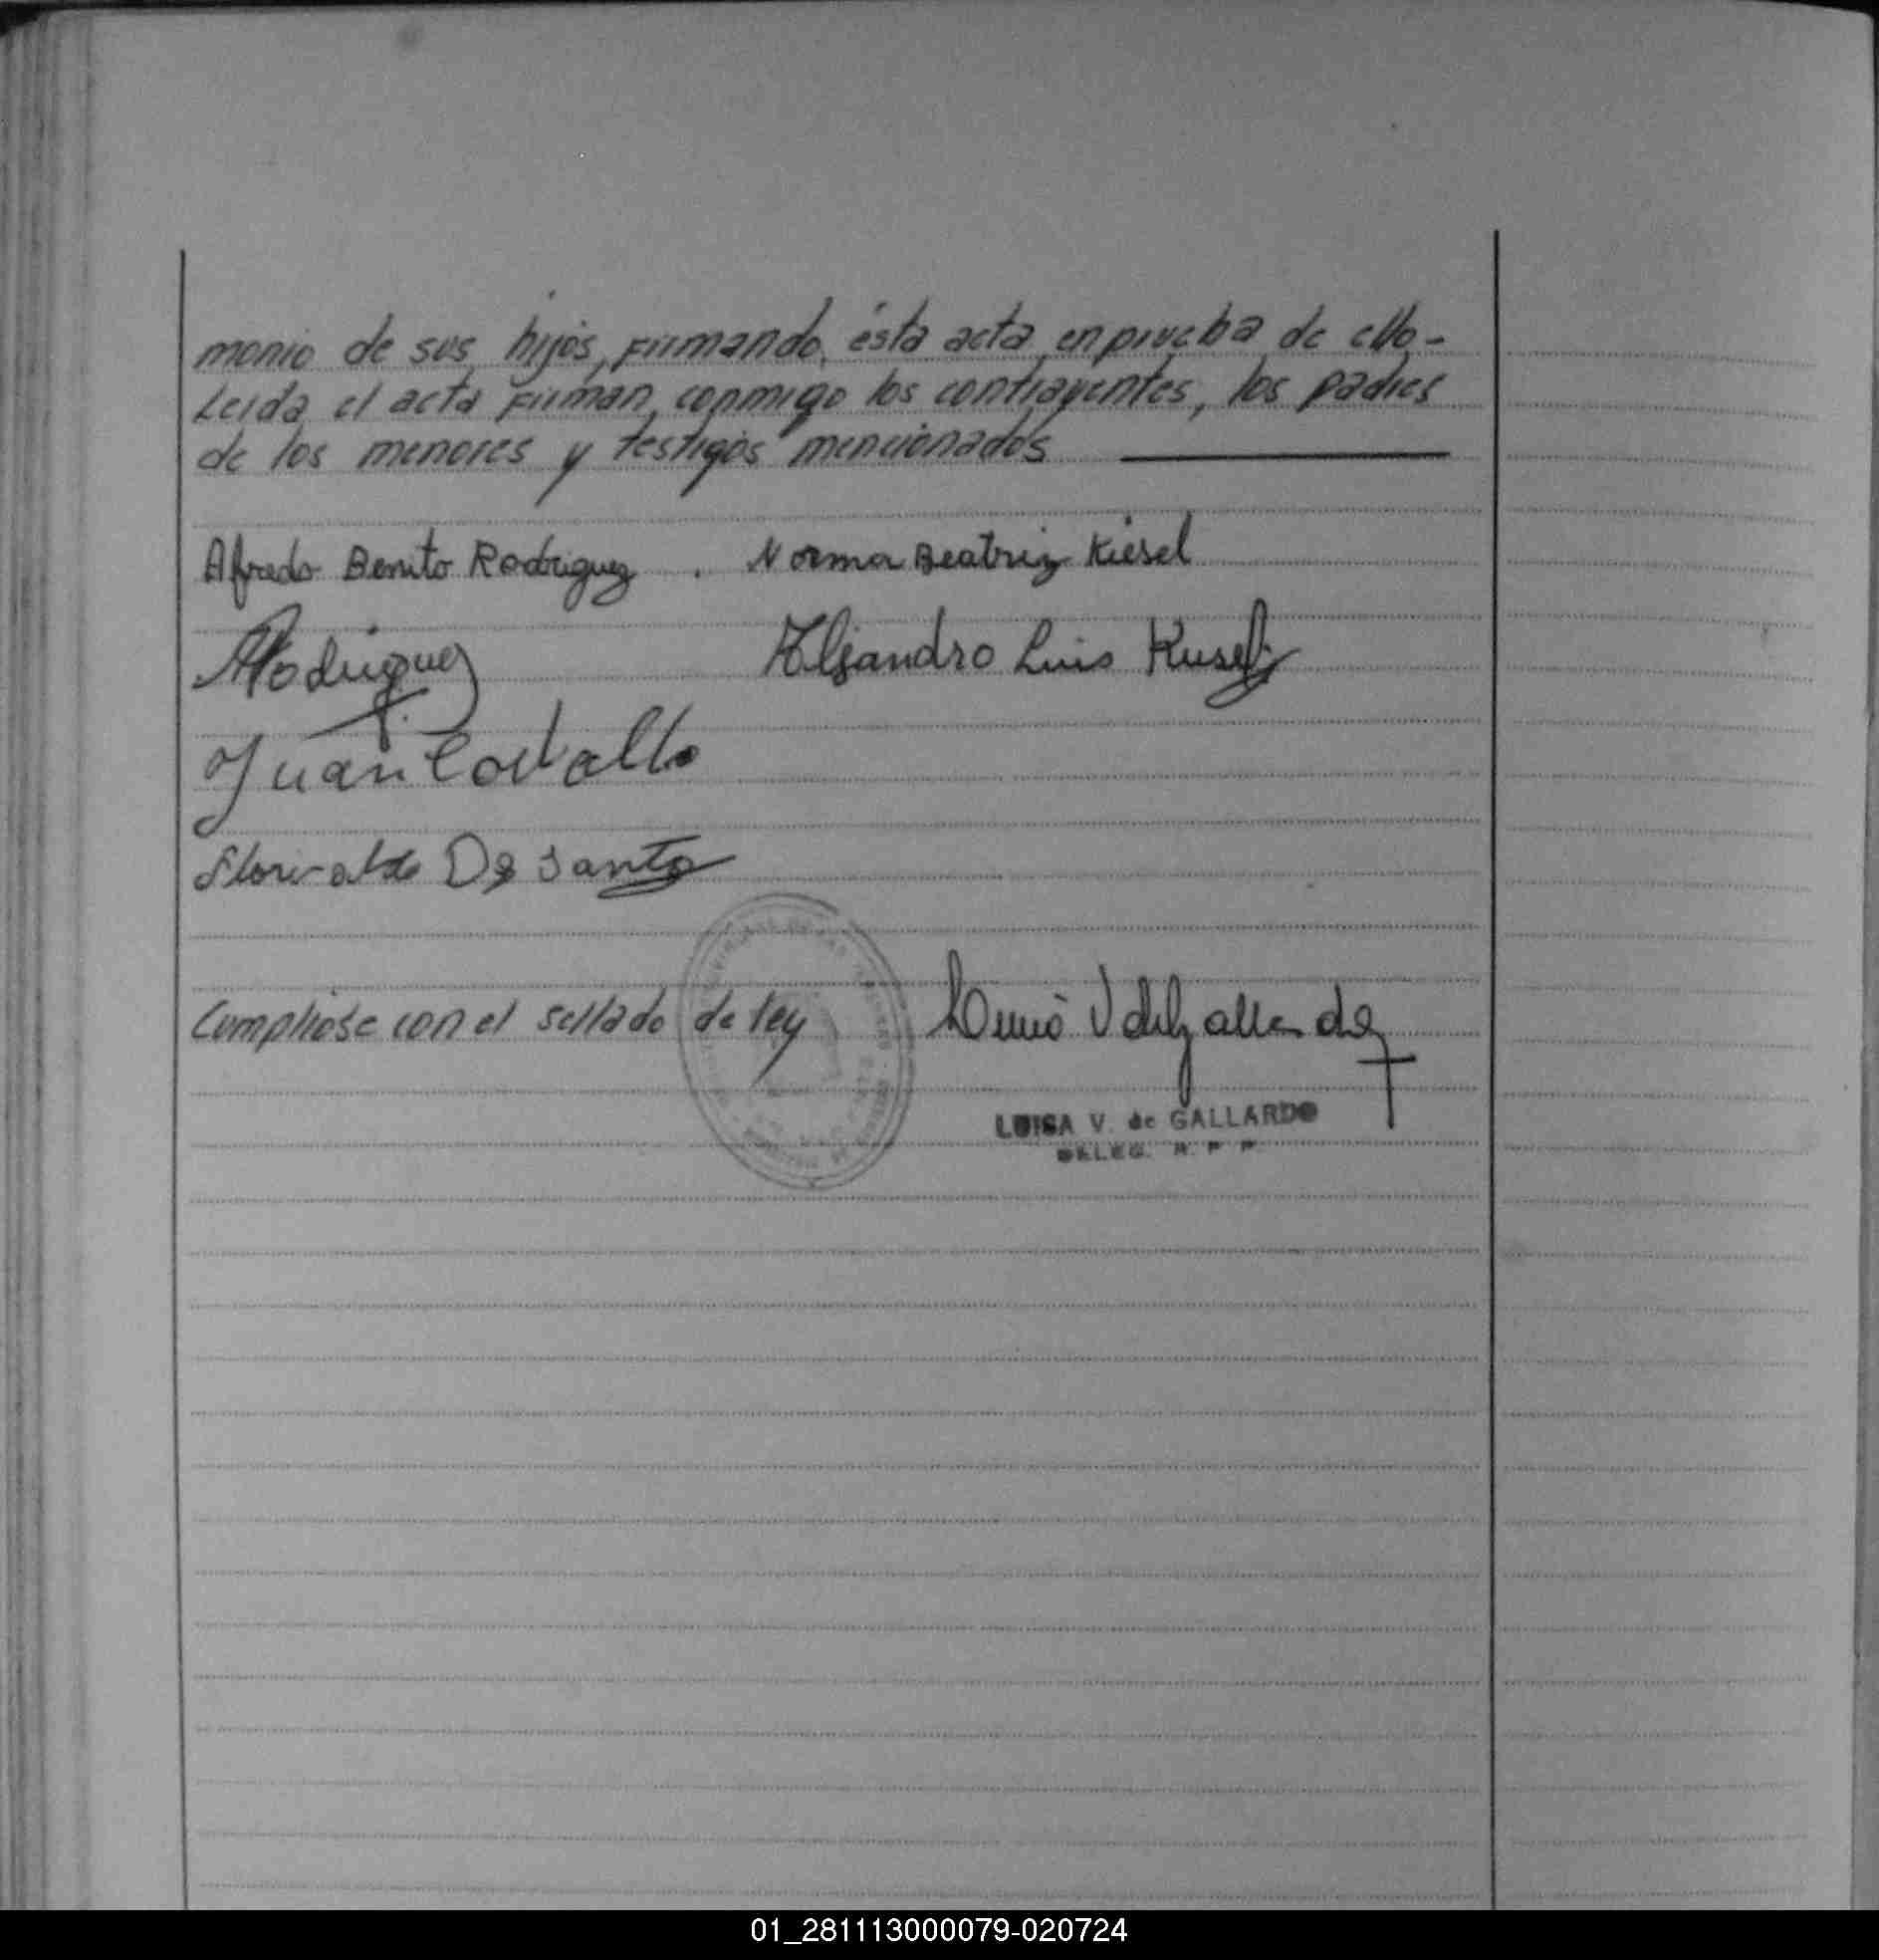 monio de sus hijos, firmando, ésta acta en prueba de ello.-
Leida el acta firman conmigo los contrayentes, los padres
de los menores y testigos mencionados
Alfredo Benito Rodriguez . Norma Beatriz Kiesel
ARodriguez Alejandro Luis
Juan
De Santo
Cumpliose con el sellado de ley
LUISA V. de GALLARDO
DELEG. R P P
01_281113000079-020724